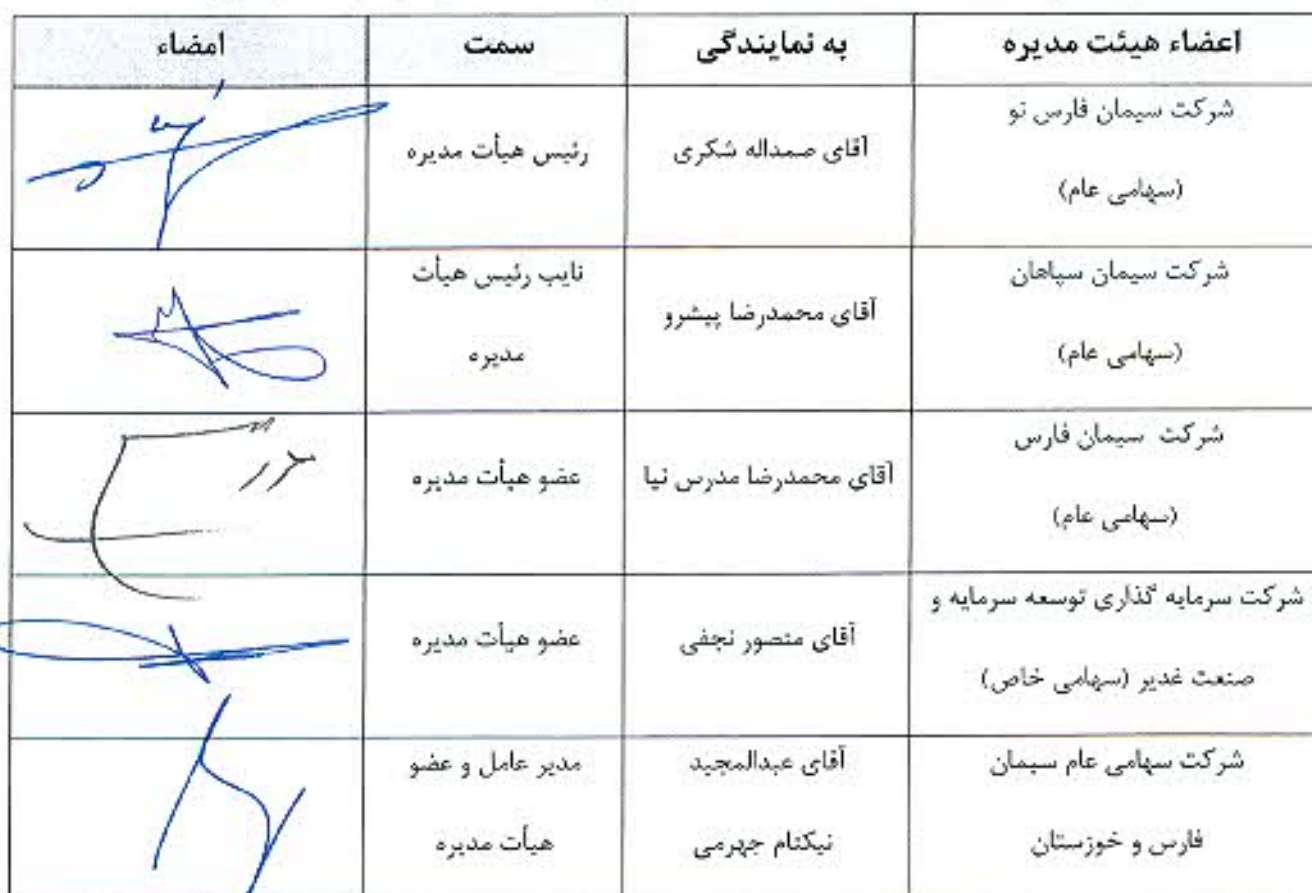 اعضاء هیئت مدیره به نمایندگی سمت امضاء
شرکت سیمان فارس نو
(سهامی عام)
آقای صمداله شکری
رئیس هیأت مدیره
شرکت سیمان سپاهان
(سهامی عام)
آقای محمدرضا پیشرو
نایب رئیس هیأت
مدیره
شرکت سیمان فارس
(سهامی عام)
آقای محمدرضا مدرس نیا
عضو هیأت مدیره
شرکت سرمایه گذاری توسعه سرمایه و
صنعت غدیر (سهامی خاص)
آقای منصور نجفی
عضو هیأت مدیره
شرکت سهامی عام سیمان
فارس و خوزستان
آقای عبدالمجید
نیکنام جهرمی
مدیر عامل و عضو
هیأت مدیره